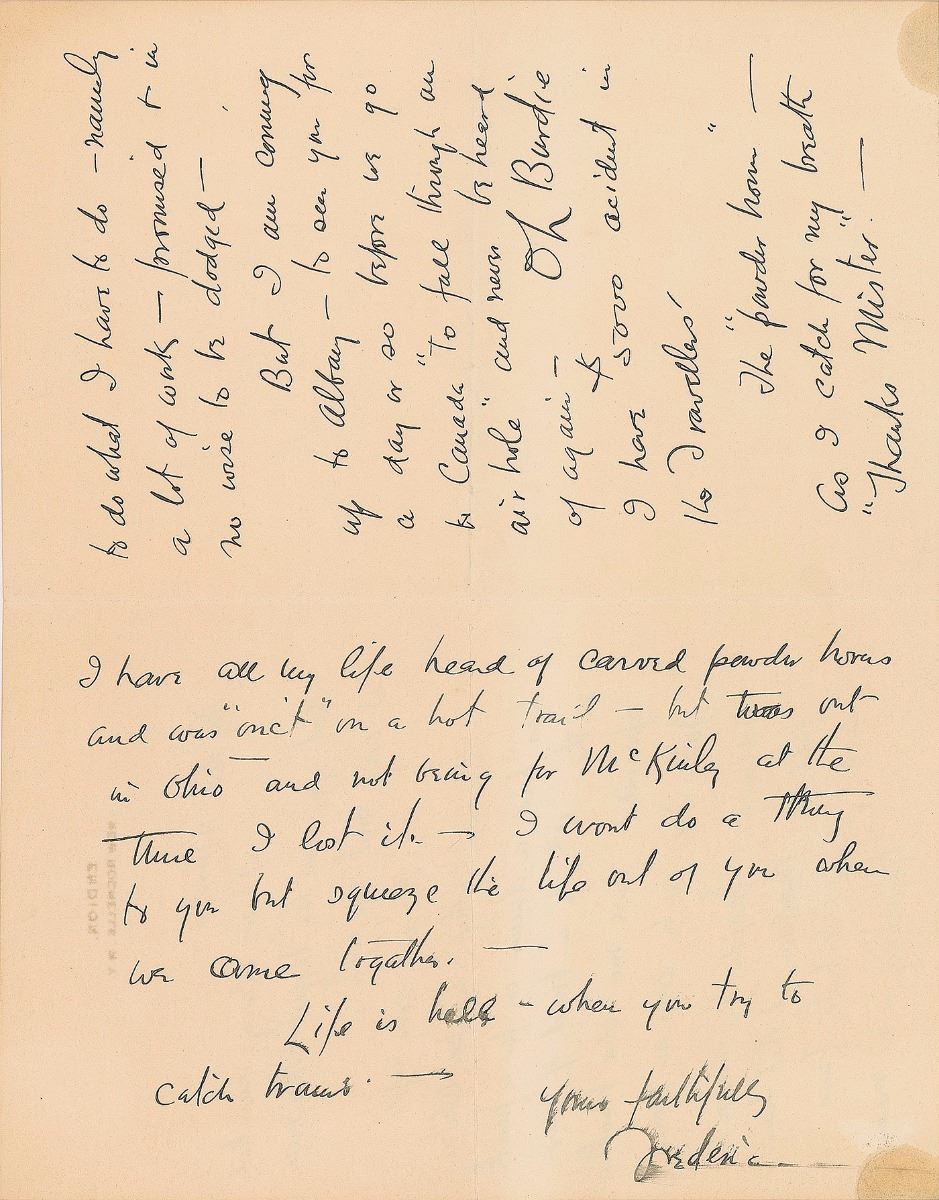 to do what I have to do - namely
a lot of work - promised & in
no wise to be dodged -
But I am coming
up to Albany - to see you for
a day or so before we go
to Canada "to fall through an
air hole" and never be heard
of again - Oh Burdie
I have $5000 accident in
the Travellers'
"
The "powder horn" -
as I catch for my breath
"Thanks Mister" -
I have all my life heard of carved powder horns
and was "onct" on a hot trail - but twas out
in Ohio - and not being for McKinley at the
time I lost it. - I wont do a thing
to you but squeeze the life out of you when
we come together. -
Life is hell - when you try to
catch trains. -
Yours faithfully
Frederic
ENDION
NEW ROCHELLE N.Y.